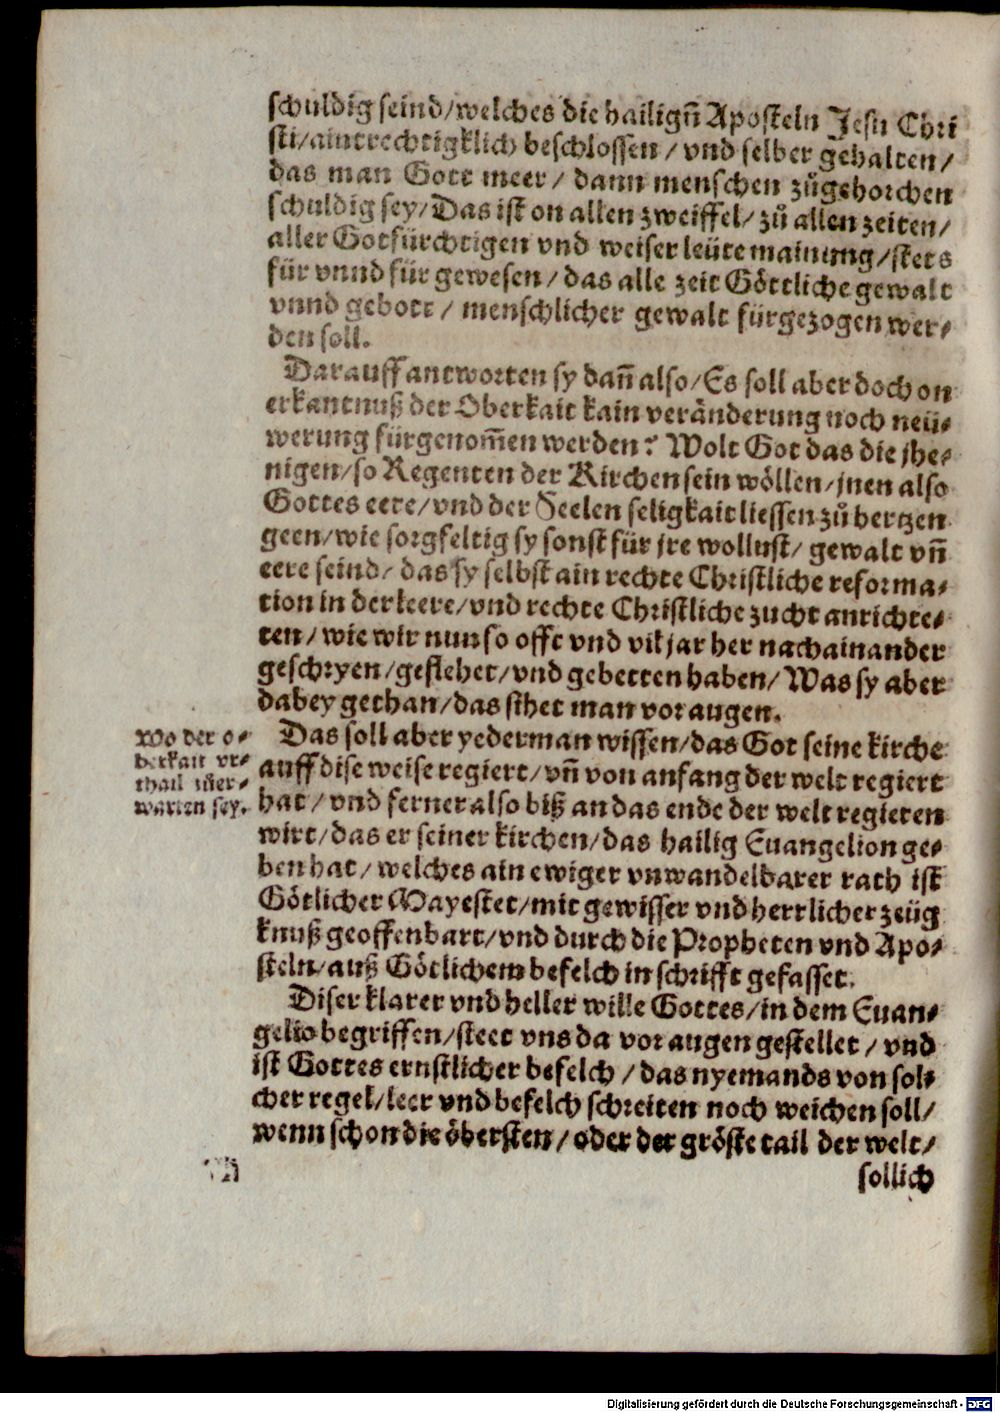 schuldig seind/welches die hailigñ Aposteln Jesu Chri
sti/aintrechtigklich beschlossen/vnd selber gehalten/
das man Gott meer/dann menschen zůgehorchen
schuldig sey/Das ist on allen zweiffel/zů allen zeiten/
aller Gotfürchtigen vnd weiser leüte mainung/stets
für vnnd für gewesen/das alle zeit Göttliche gewalt
vnnd gebott/menschlicher gewalt fürgezogen wer⸗
den soll.
Darauff antworten sy dañ also/Es soll aber doch on
erkantnuß der Oberkait kain veränderung noch neü⸗
werung fürgenom̃en werden? Wolt Got das die jhe⸗
nigen/so Regenten der Kirchen sein wöllen/jnen also
Gottes eere/vnd der Seelen seligkait liessen zů hertzen
geen/wie sorgfeltig sy sonst für jre wollust/gewalt vñ
eere seind/das sy selbst ain rechte Christliche reforma⸗
tion in der leere/vnd rechte Christliche zucht anrichte⸗
ten/wie wir nun so offt vnd vil jar her nachainander
geschryen/geflehet/vnd gebetten haben/Was sy aber
dabey gethan/das sihet man vor augen.
Wo der o⸗
berkait vr⸗
thail zůer⸗
warten sey.
Das soll aber yederman wissen/das Got seine kirche
auff dise weise regiert/vñ von anfang der welt regiert
hat/vnd ferner also biß an das ende der welt regieren
wirt/das er seiner kirchen/das hailig Euangelion ge⸗
ben hat/welches ain ewiger vnwandelbarer rath ist
Götlicher Mayestet/mit gewisser vnd herrlicher zeüg
knuß geoffenbart/vnd durch die Propheten vnd Apo⸗
steln/auß Götlichem befelch in schrifft gefasset.
Diser klarer vnd heller wille Gottes/in dem Euan⸗
gelio begriffen/steet vns da vor augen gestellet/vnd
ist Gottes ernstlicher befelch/das nyemands von sol⸗
cher regel/leer vnd befelch schreiten noch weichen soll/
wenn schon die öbersten/oder der gröste tail der welt/
sollich
Digitalisierung gefördert durch die Deutsche Forschungsgemeinschaft - DFG